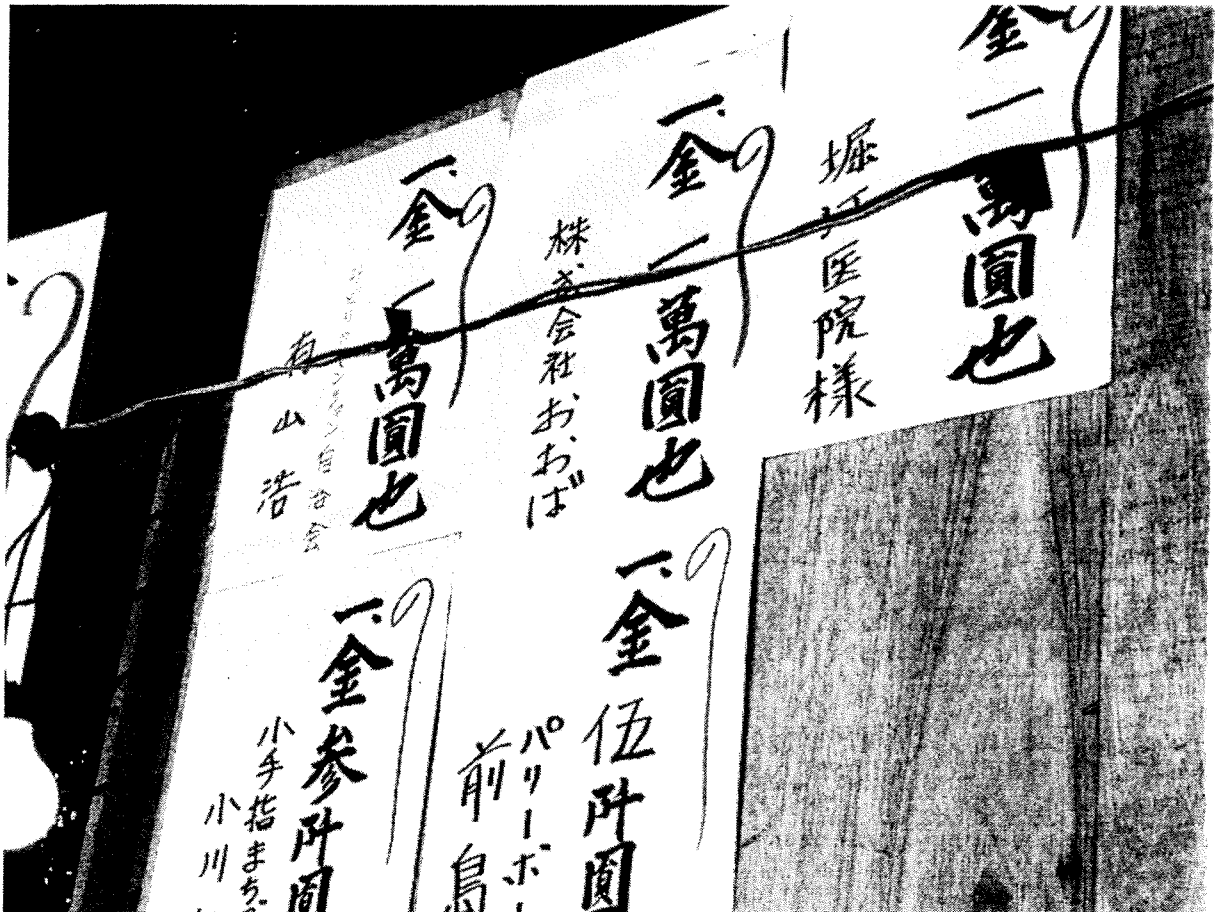 金一萬圓也
堀江医院様
一金一萬圓也
株式会社おおば
一金一萬圓也
自治会
有山浩
一金伍阡圓
パリーボー
前島
一金参阡圓
小手指まち
小川